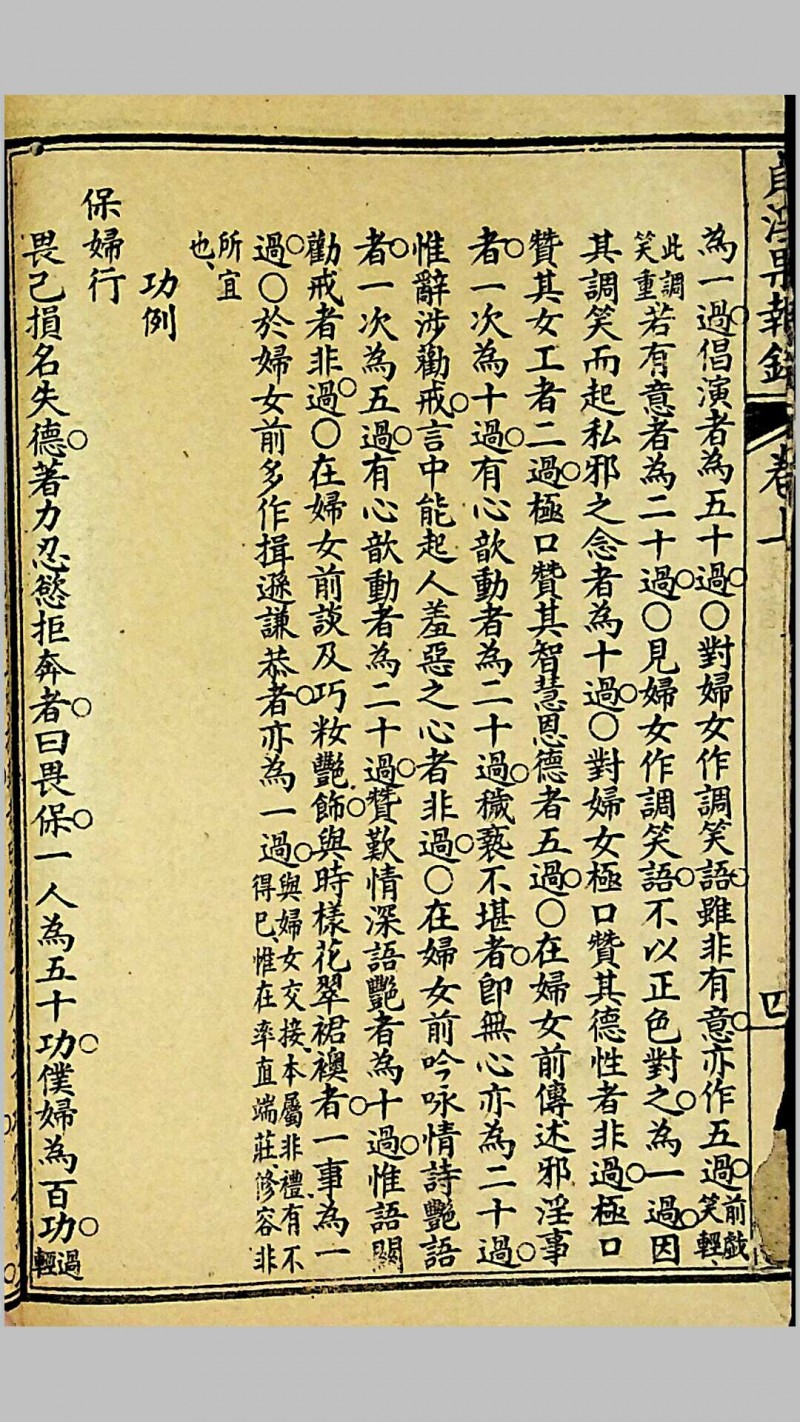 貞淫果報錄 卷上 四
為一過倡演者為五十過〇對婦女作調笑語雖非有意亦作五過前戲笑輕、
此調笑重若有意者為二十過〇見婦女作調笑語不以正色對之為一過因
其調笑而起私邪之念者為十過〇對婦女極口贊其德性者非過極口
贊其女工者二過極口贊其智慧恩德者五過〇在婦女前傳述邪淫事
者一次為十過有心歆動者為二十過穢褻不堪者卽無心亦為二十過
惟辭涉勸戒言中能起人羞惡之心者非過〇在婦女前吟咏情詩艷語
者一次為五過有心歆動者為二十過贊歎情深語艷者為十過惟語關
勸戒者非過〇在婦女前談及巧妝艷飾與時樣花翠裙襖者一事為一
過〇於婦女前多作揖遜謙恭者亦為一過與婦女交接、本屬非禮、有不得已、惟在率直端莊、修容非
所宜也、
功例
保婦行
畏己損名失德著力忍慾拒奔者曰畏保一人為五十功僕婦為百功過輕